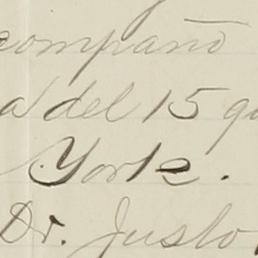 compañó
a del 15 qu
York.
Dr. Justo